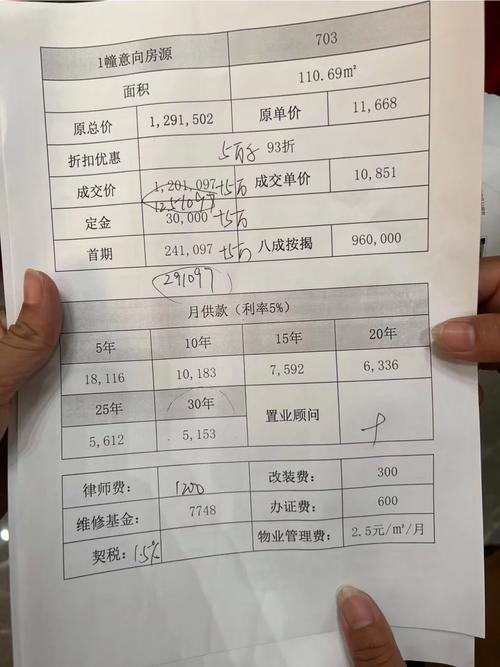 1幢意向房源 703
面积 110.69㎡
原总价 1,291,502 原单价 11,668
折扣优惠 93折
成交价 1,201,097 +5万 成交单价 10,851
1251097
定金 30,000 +5万
首期 241,097 +5万 八成按揭 960,000
291097
月供款（利率5%）
5年 10年 15年 20年
18,116 10,183 7,592 6,336
25年 30年 置业顾问
5,612 5,153
律师费: 1200 改装费: 300
维修基金: 7748 办证费: 600
契税: 1.5% 物业管理费: 2.5元/㎡/月